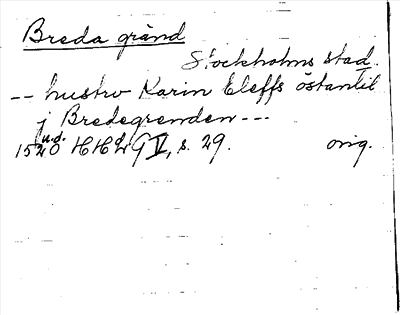 Breda gränd
Stockholms stad.
-- hustro Karin Eleffs östantil
j Bredegrenden ---
u.d.
1520 HHLG V, s. 29. orig.